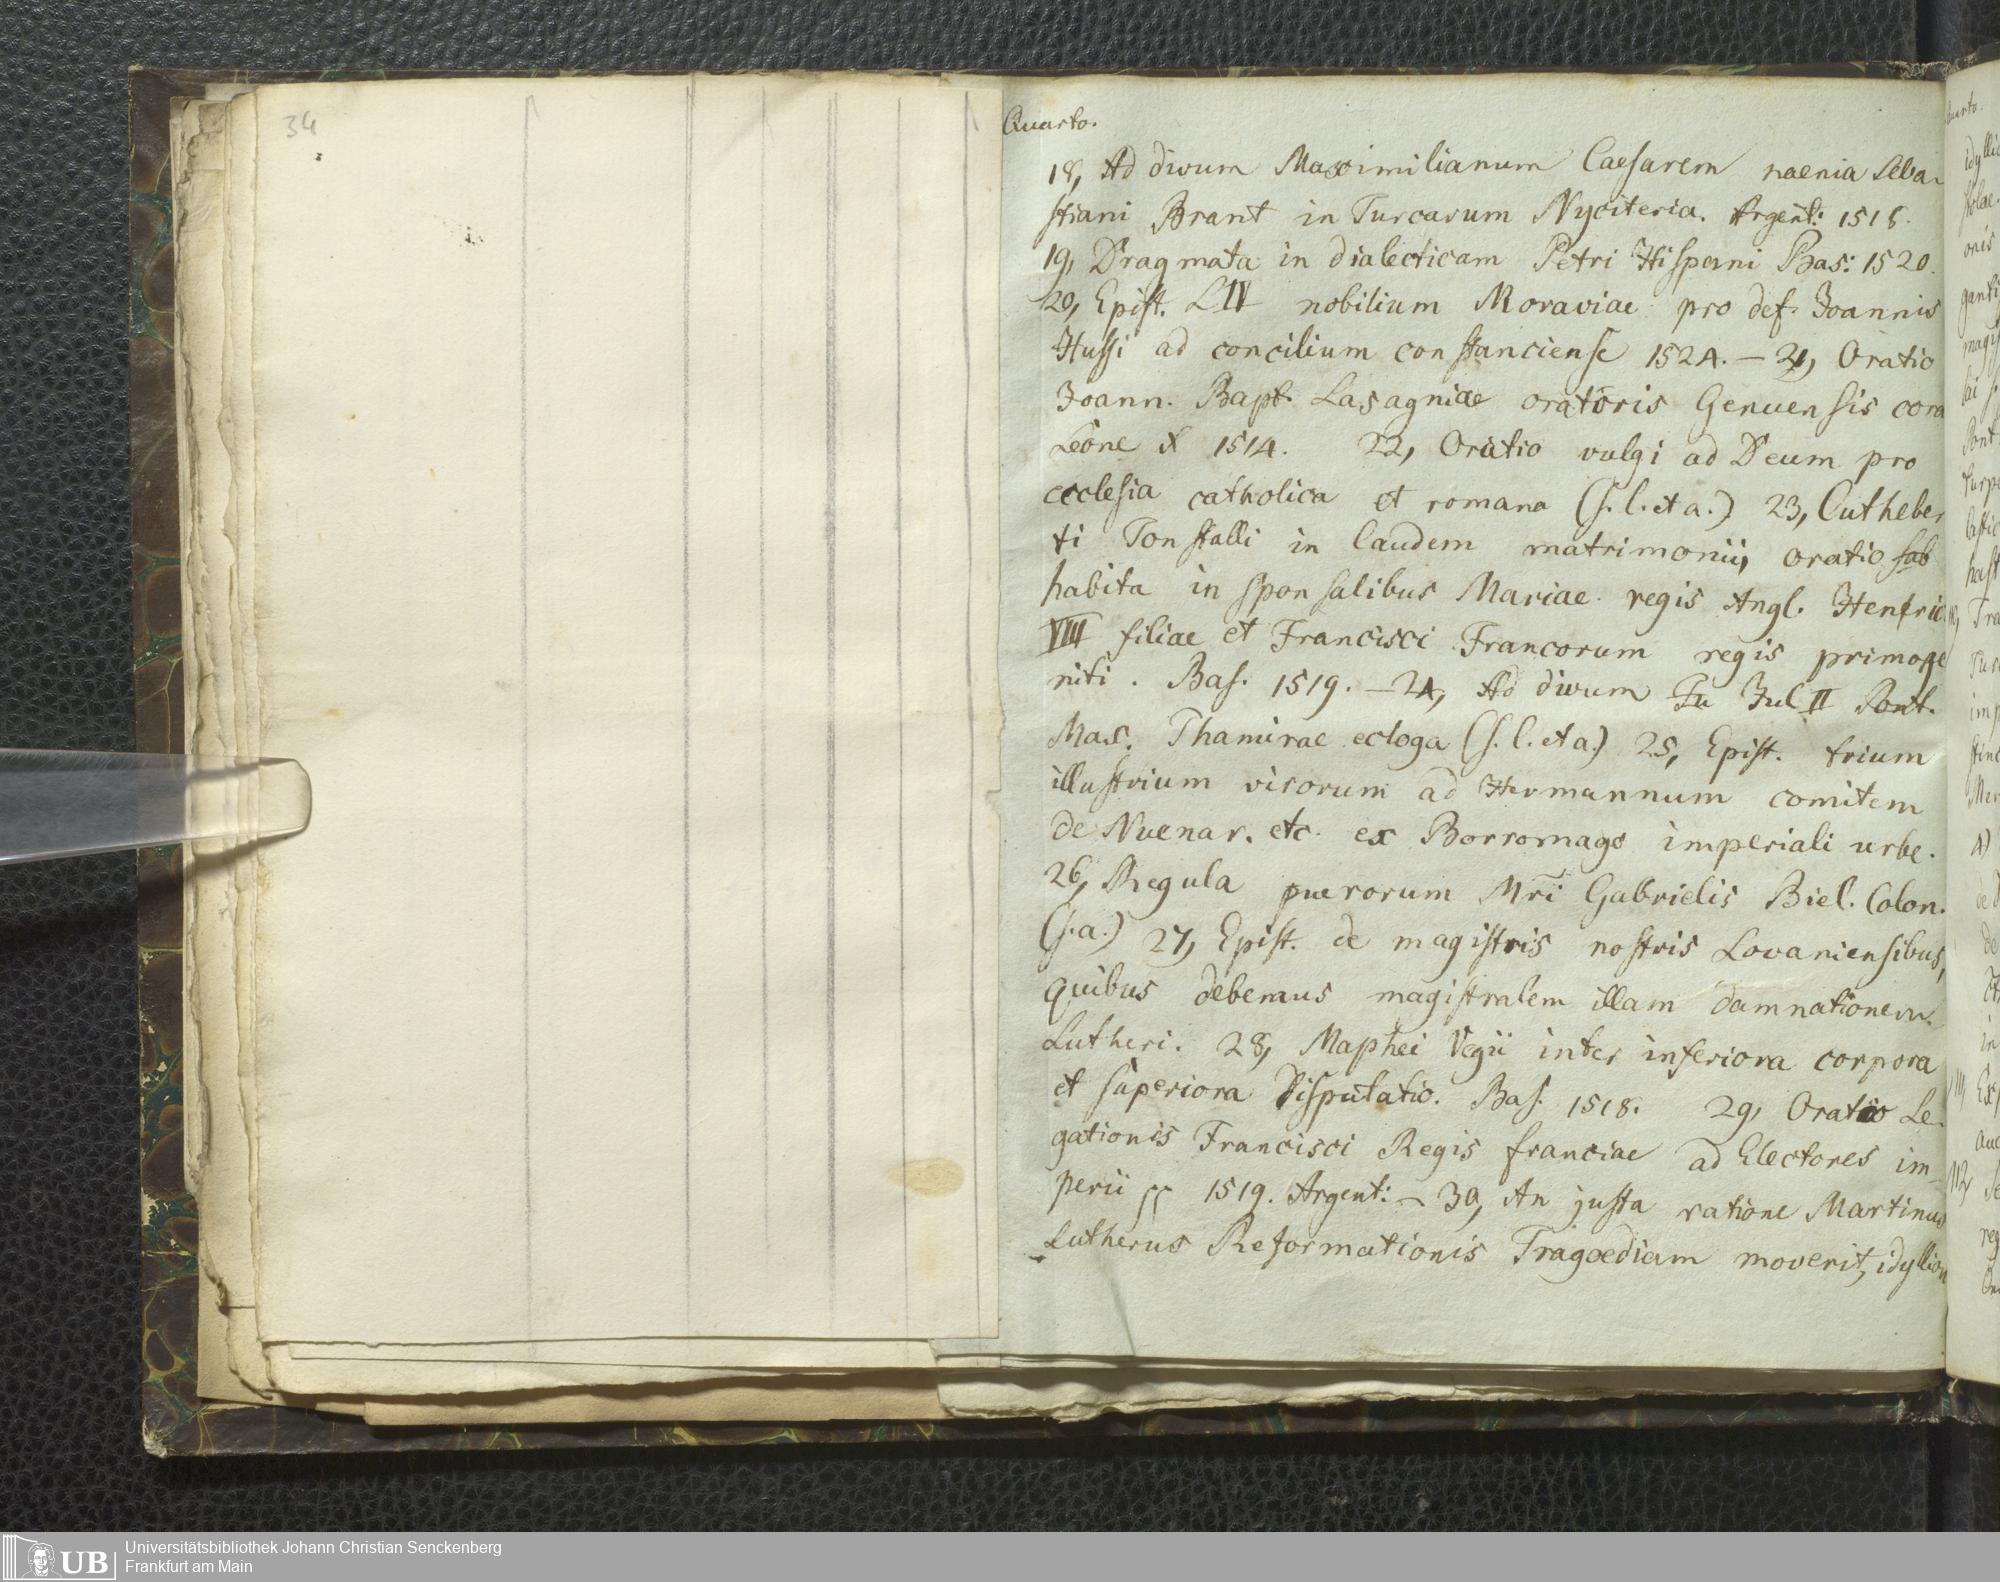 34
Quarto.
18, Ad divum Maximilianum Caesarem naenia Seba-
stiani Brant in Turcarum Nyciteria. Argent: 1518.
19, Dragmata in dialecticam Petri Hispani Bas: 1520.
20, Epist. LIV nobilium Moraviae pro def. Joannis
Hussi ad concilium constanciense 1524. — 21, Oratio
Joann. Bapt. Lasagniae oratoris Genuensis cora
Leone X 1514. 22, Oratio vulgi ad Deum pro
ecclesia catholica et romana (s. l. et a.) 23, Cutheber
ti Tonstalli in laudem matrimonii, oratio
habita in sponsalibus Mariae regis Angl. Henric.
VIII filiae et Francisci Francorum regis primoge
niti. Bas. 1519. — 24, Ad divum Jul II Pont.
Max. Thamirae ecloga (s. l. et a.) 25, Epist. trium
illustrium virorum ad Hermannum comitem
de Nuenar. etc. ex Borromago imperiali urbe.
26, Regula puerorum Mri Gabrielis Biel. Colon.
(s. a.) 27, Epist. de magistris nostris Lovaniensibus,
quibus debemus magistralem illam damnationem
Lutheri. 28, Maphei Vegii inter inferiora corpora
et superiora Disputatio. Bas. 1518. 29, Oratio Le-
gationis Francisci Regis franciae ad Electores im-
perii 1519. Argent: — 30, An justa ratione Martinus
Lutherus Reformationis Tragoediam moverit, idyllion
Universitätsbibliothek Johann Christian Senckenberg
Frankfurt am Main
UB